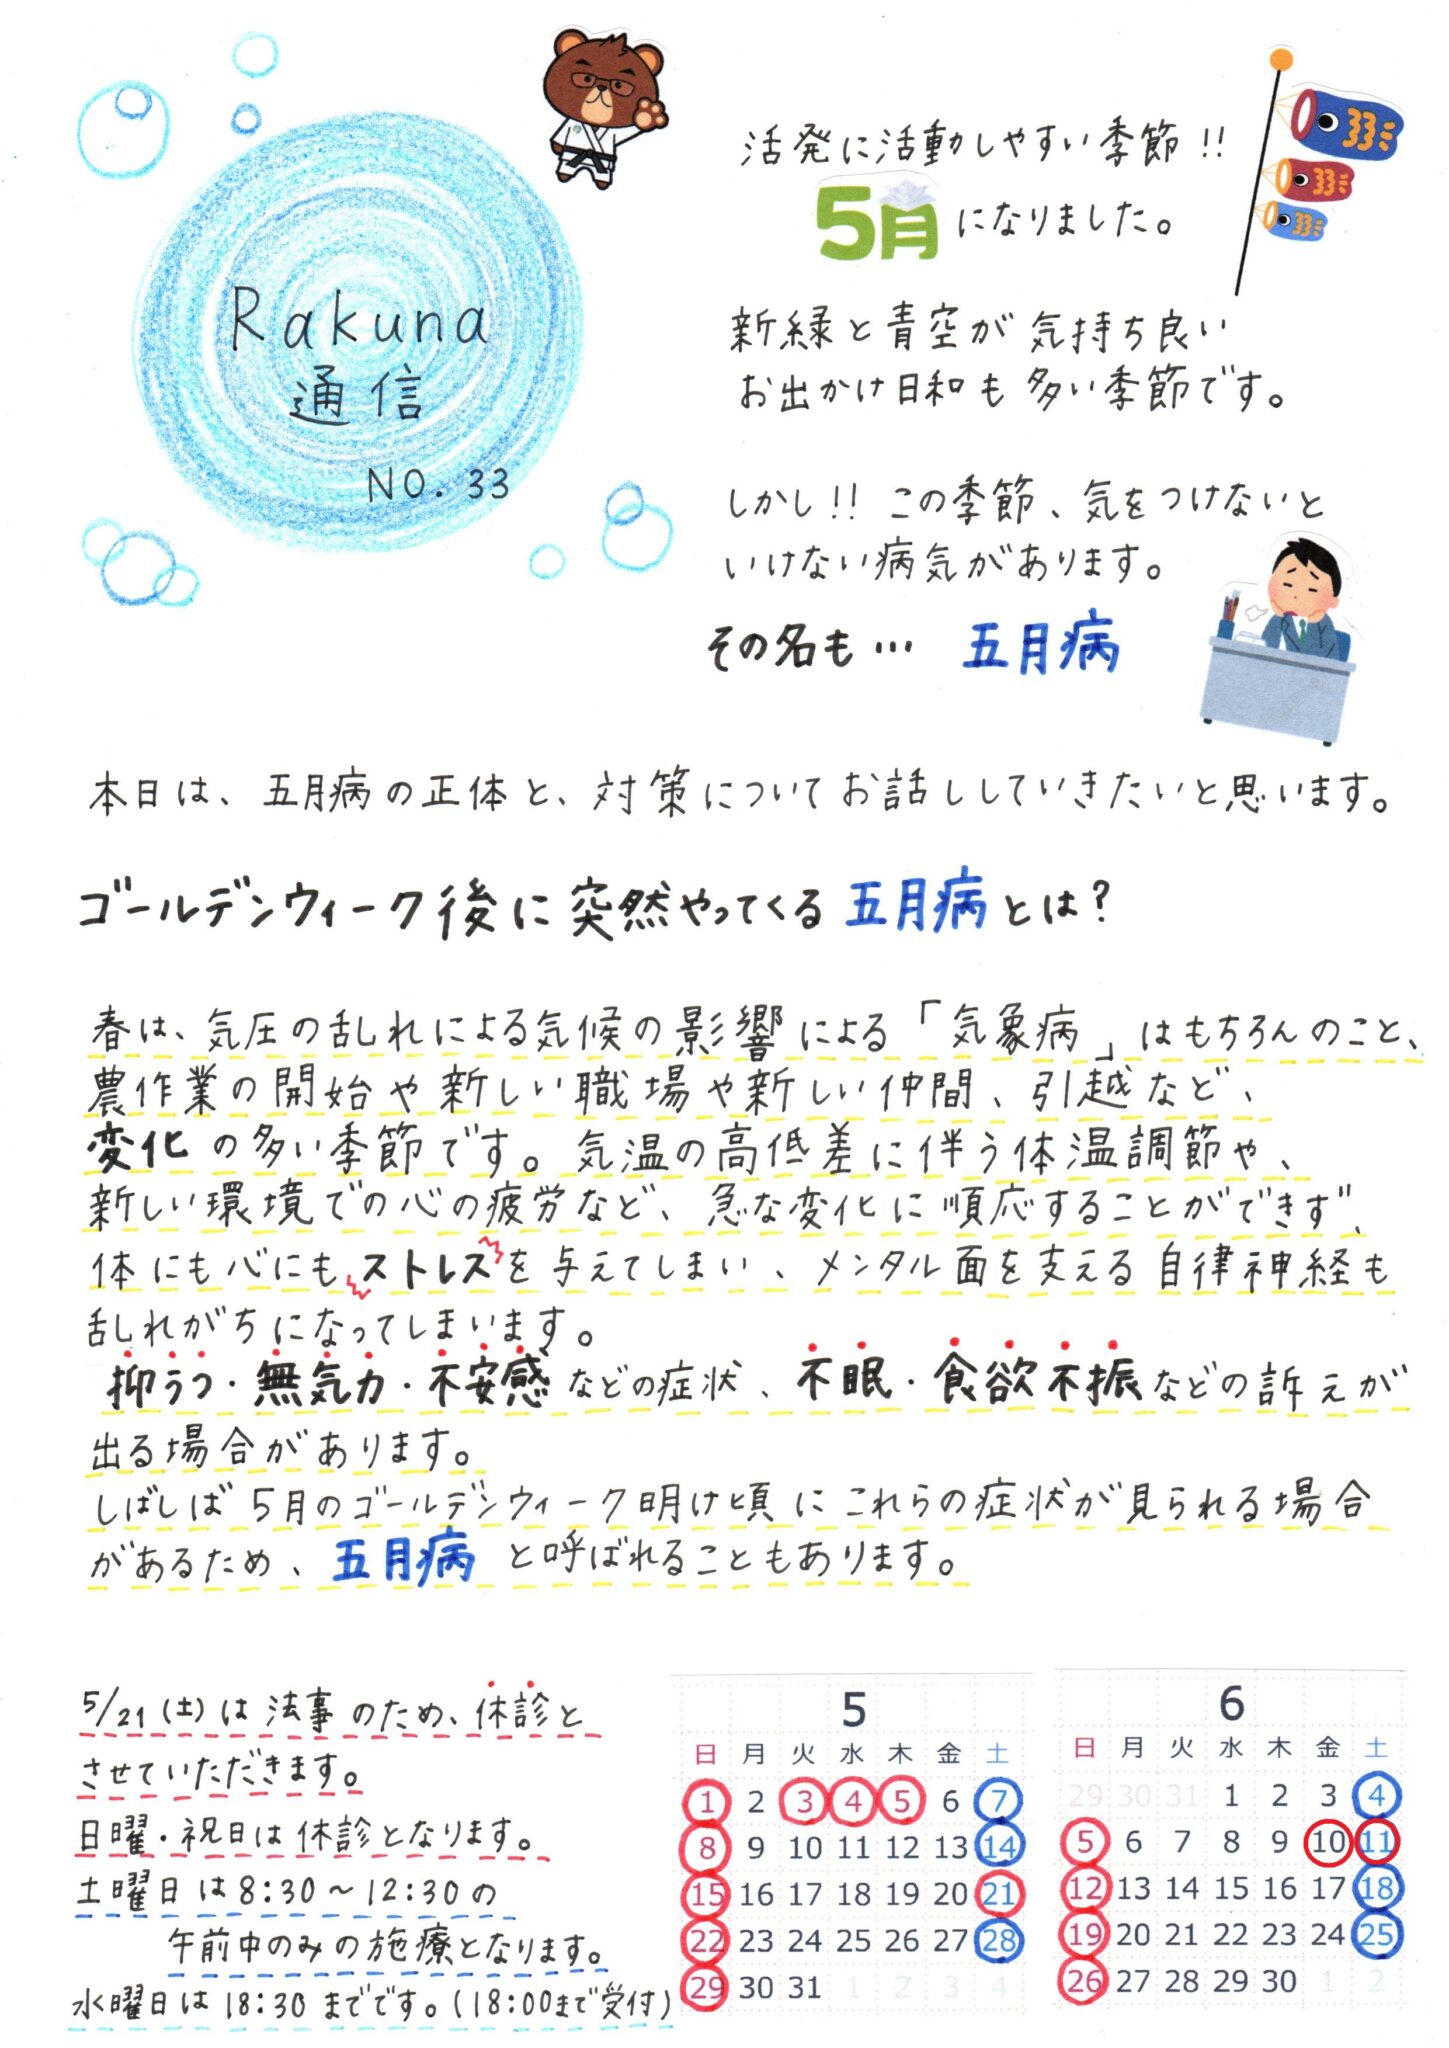 Rakuna
通信
NO.33
活発に活動しやすい季節!!
5月になりました。
新緑と青空が気持ち良い
お出かけ日和も多い季節です。
しかし!!この季節、気をつけないと
いけない病気があります。
その名も… 五月病
本日は、五月病の正体と、対策についてお話ししていきたいと思います。
ゴールデンウィーク後に突然やってくる五月病とは?
春は、気圧の乱れによる気候の影響による「気象病」はもちろんのこと、
農作業の開始や新しい職場や新しい仲間、引越など、
変化の多い季節です。気温の高低差に伴う体温調節や、
新しい環境での心の疲労など、急な変化に順応することができず、
体にも心にもストレスを与えてしまい、メンタル面を支える自律神経も
乱れがちになってしまいます。
抑うつ・無気力・不安感などの症状、不眠・食欲不振などの訴えが
出る場合があります。
しばしば5月のゴールデンウィーク明け頃にこれらの症状が見られる場合
があるため、五月病と呼ばれることもあります。
5/21(土)は法事のため、休診と
させていただきます。
日曜・祝日は休診となります。
土曜日は8:30~12:30の
午前中のみの施療となります。
水曜日は18:30までです。(18:00まで受付)
5
日 月 火 水 木 金 土
1 2 3 4 5 6 7
8 9 10 11 12 13 14
15 16 17 18 19 20 21
22 23 24 25 26 27 28
29 30 31 1 2 3 4
6
日 月 火 水 木 金 土
29 30 31 1 2 3 4
5 6 7 8 9 10 11
12 13 14 15 16 17 18
19 20 21 22 23 24 25
26 27 28 29 30 1 2